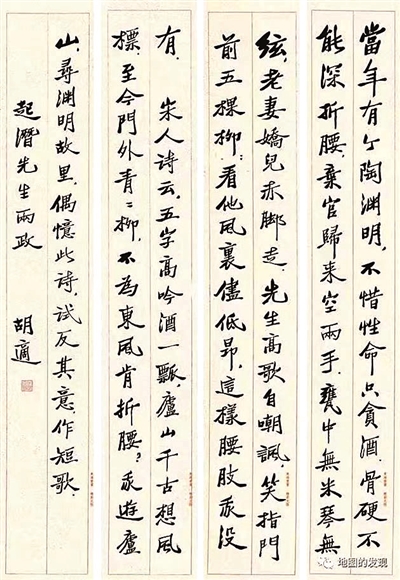 當年有个陶渊明,不惜性命只貪酒,骨硬不
能深折腰,棄官歸来空兩手,甕中無米琴無
絃,老妻嬌兒赤脚走.先生高歌自嘲諷,笑指門
前五棵柳:看他風裏儘低昂,這樣腰肢我没
有. 宋人诗云,五字高吟酒一瓢,廬山千古想風
標,至今門外青々柳,不為東風肯折腰?我遊廬
山,尋渊明故里,偶憶此诗,試反其意,作短歌.
起潛先生兩政 胡適
地图的发现